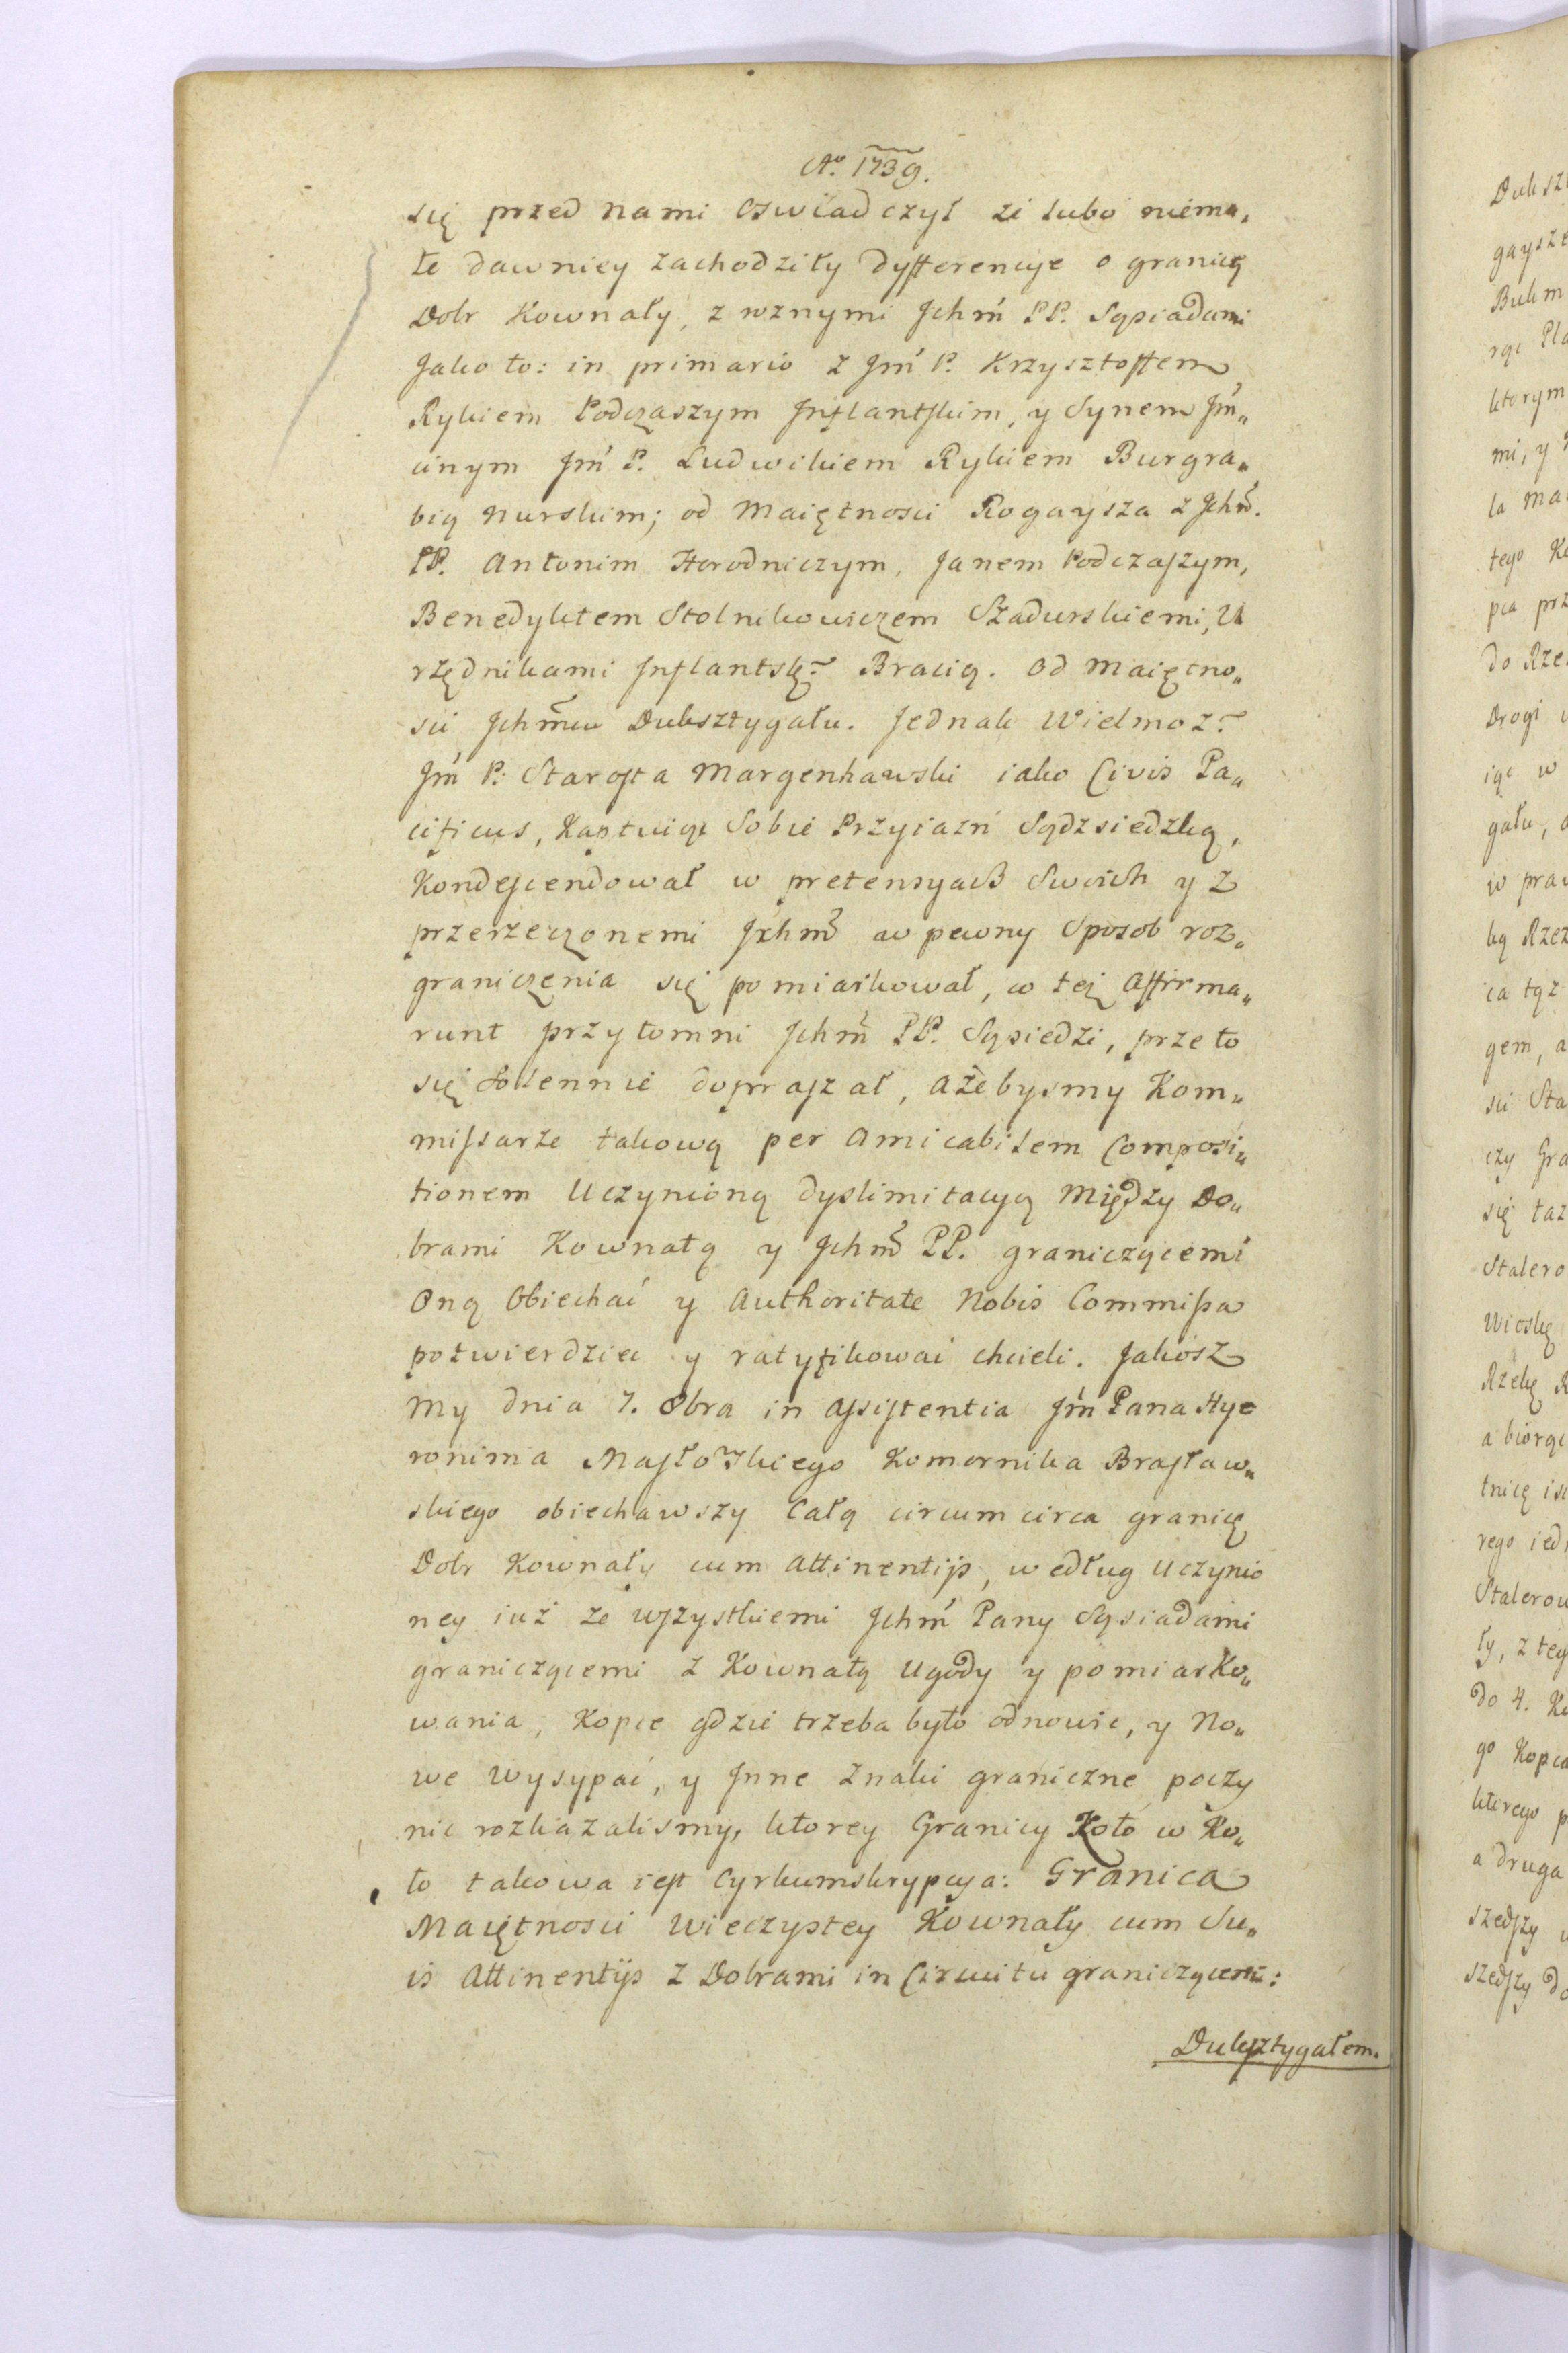 Aº. 1739.
się przed nami oswiadczył że lubo niema„
łe dawniey zachodziły dyfferencye o granicę
Dobr Kownały, z roznymi Jchm̃ PP. Sąsiadami
Jako to: in primario z Jm̃ P. Krzysztoffem
Rykiem Podczaszym Jnflantskim, y Synem Jm̃„
cinym Jm̃ P. Ludwikiem Rykiem Burgra„
bią Nurskim; od Maiętnosci Rogaysza z Jchm̃.
PP. Antonim Horodniczym, Janem Podczaszym,
Benedyktem Stolnikowiczem Szadurskiemi, U
rzędnikami Jnflantsk: Bracią. Od maiętno„
sci Jchm̃ciu Duksztygału. Jednak Wielmoz:
Jm̃ P. Starosta Margenhawski iako Civis Pa„
cificus, Kaptuiąc Sobie Przyiazń Sądzsiedzką,
Kondescendował w pretensyach Swoich y z
przerzeczonemi Jchm̃ w pewny Sposob roz„
graniczenia się pomiarkował, co też affirma„
runt przytomni Jchm̃ PP. Sąsiedzi, przeto
się Solennie dopraszał, ażebysmy Kom„
missarze takową per amicabilem Composi„
tionem Uczynioną dyslimitacyą Między Do„
brami Kownatą y Jchm̃ PP. graniczącemi
Oną Obiechać y Authoritate Nobis Commissa
potwierdzić y ratyfikować chcieli. Jakosz
My dnia 7. 8bra in assistentia Jm̃ Pana Hye
ronima Masłowskiego Komornika Brasław„
skiego obiechawszy Całą circum circa granicę
Dobr Kownały cum attinentijs, według Uczynio
ney iuż ze wszystkiemi Jchm̃ Pany Sąsiadami
graniczącemi z Kownatą Ugody y pomiarKo„
wania, Kopce gdzie trzeba było odnowić, y No„
we wysypać, y Jnne Znaki graniczne poczy
nic rozkazalismy, ktorey Granicy Koło w Ko„
ło takowa iest Cyrkumskrypcya: Granica
Maiętnosci Wieczystey Kownały cum Su„
is Attinentijs z Dobrami in Circuitu graniczącemi:
Duksztygałem.